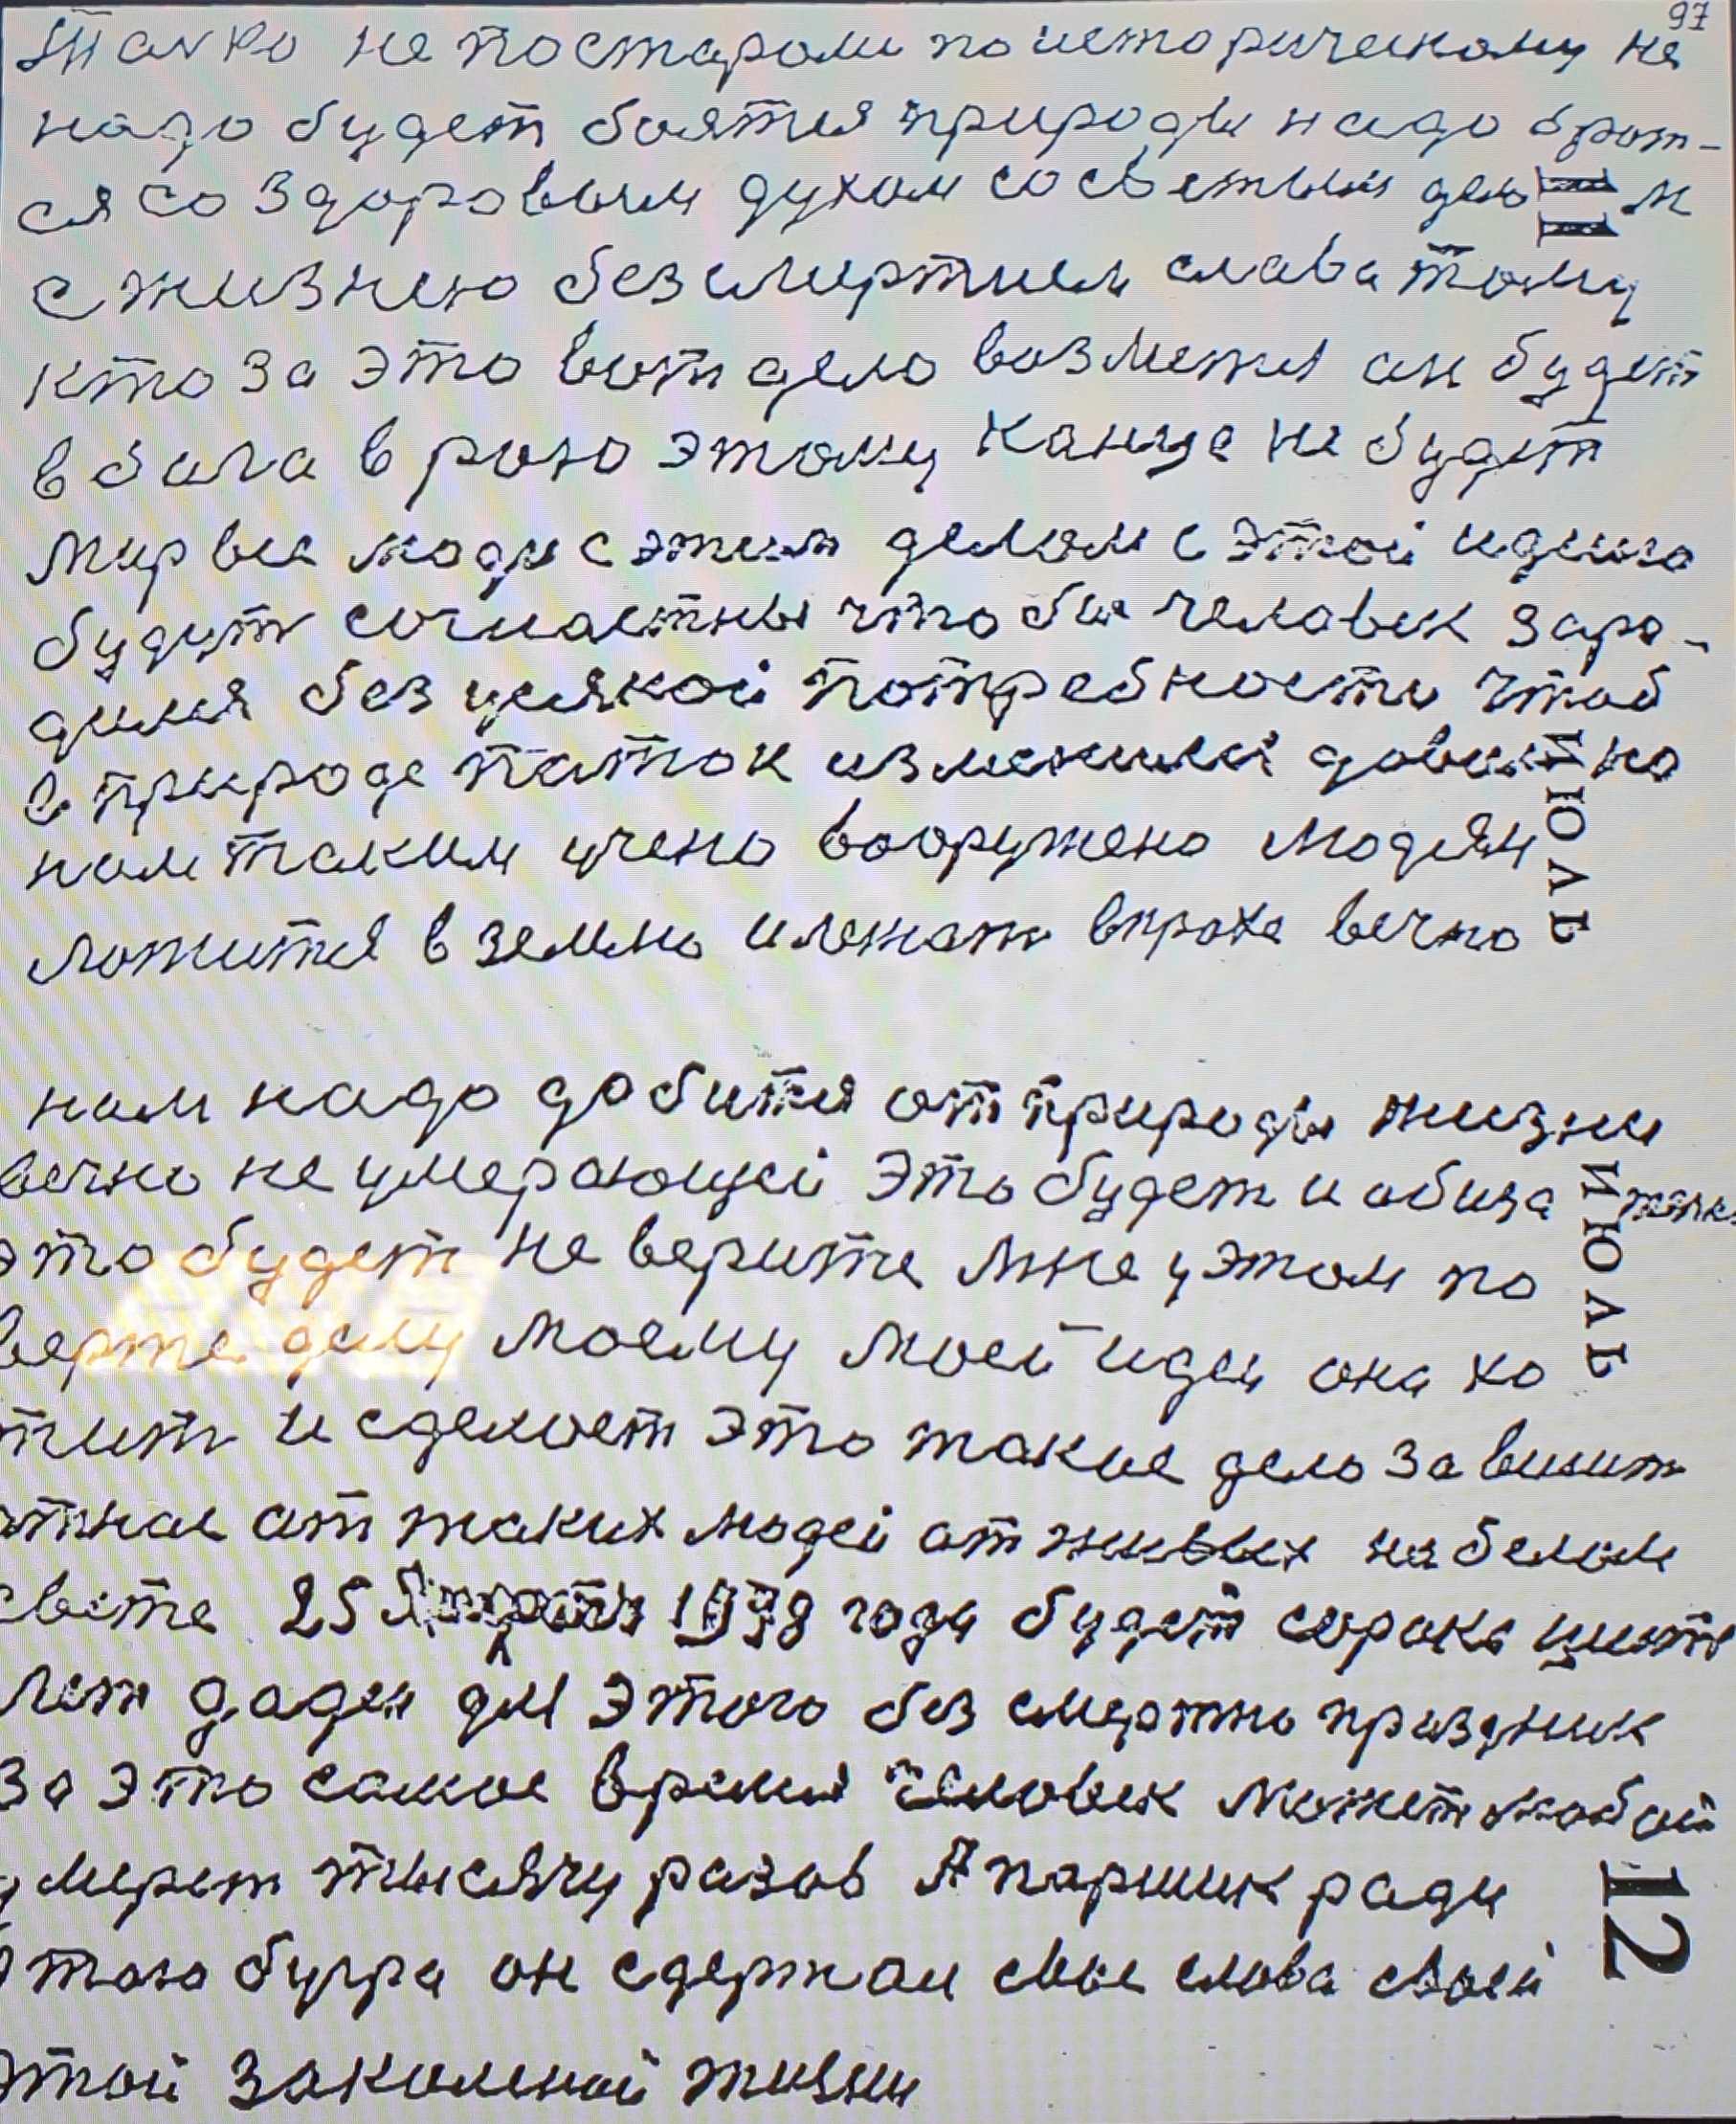 97
Толко не постарому по историческому не
надо будет боятся природы надо брат-
ся со здоровым духом со светлым дел м
с жизнею безсмертием слава тому
кто за это вот дело возметця он будет
в бога в раю этому канца не будет
мир вес люди с этим делом с этой идеию
будут сочиастны что бы человек заро-
дился без усякой потребности чтоб
в природе паток изменился довольно
нам таким учено вооружено людям
ИЮЛЬ
ложится в землю и лежат впрахе вечно
нам надо добится от природы жизни
вечно неумерающей Это будет и обиза телн
ИЮЛЬ
это будет не верите мне у этом по
верте делу моему моей идеи она хо
тит и сделает это такие дело зависит
от нас от таких людей от живых на белом
свете 25 Апреля 1978 года будет сорок пят
лет даден для этого без смертно праздник
За это самое время человек может любой
умерет тысячу разов А паршик ради
12
этого бугра он сдержал свое слова своей
этой закалиной жизни